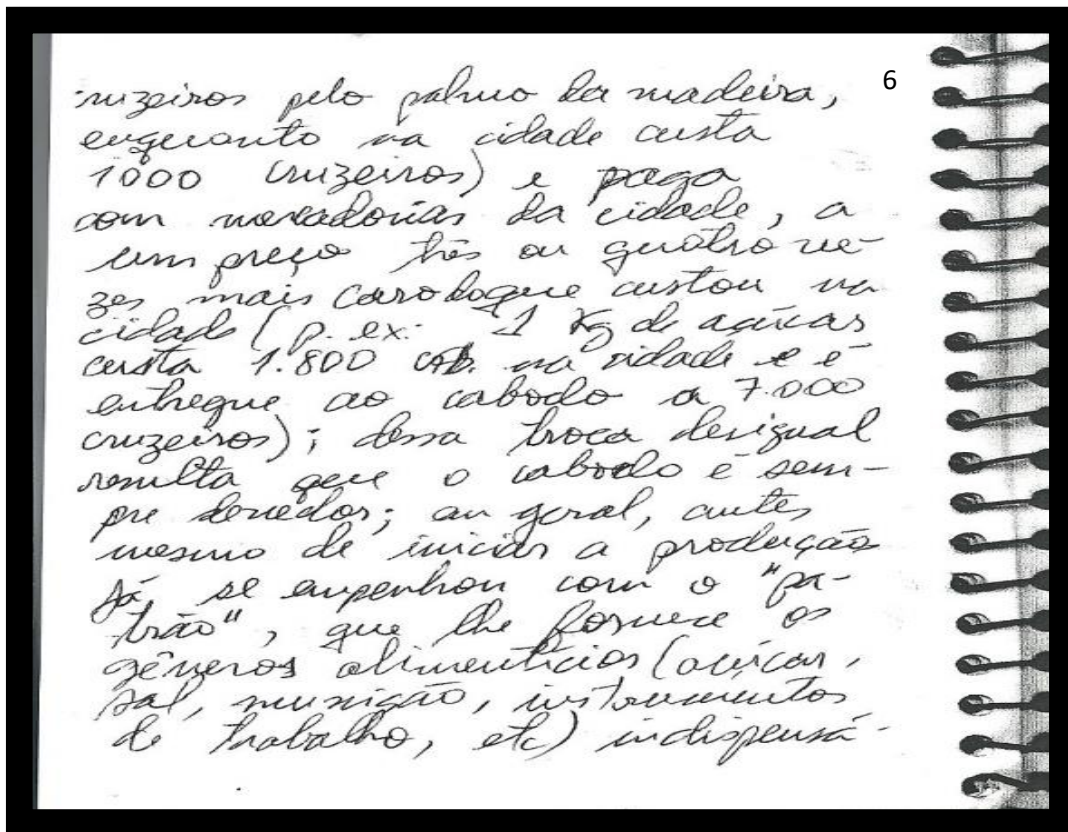 6
cruzeiros pelo palmo da madeira,
enquanto na cidade custa
1000 cruzeiros) e paga
com mercadorias da cidade, a
um preço três ou quatro ve-
zes mais caro do que custou na
cidade (p. ex: 1 Kg de açúcar
custa 1.800 na cidade e é
entregue ao caboclo a 7.000
cruzeiros); dessa troca desigual
resulta que o caboclo é sem-
pre devedor; em geral, antes
mesmo de iniciar a produção
já se empenhou com o "pa-
trão", que lhe fornece os
gêneros alimentícios (açúcar,
sal, munição, instrumentos
de trabalho, etc) indispensá-